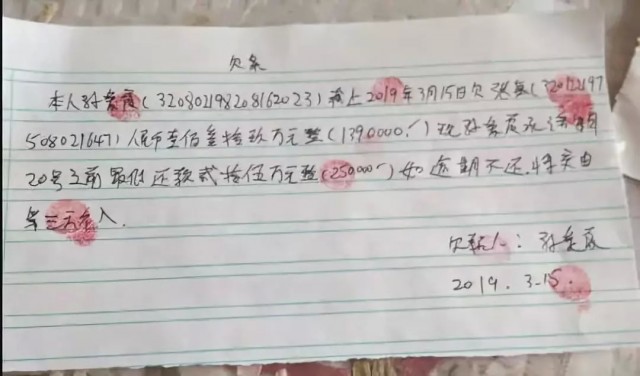 欠条
本人孙(320802198208162023)截止2019年3月15日欠张(320121197
508021647)人民币壹佰叁拾玖万元整(1390000.)现孙承诺每月
20号之前最低还款贰拾伍万元整(250000)如逾期不还,将交由
第三方介入.
欠款人:孙
2019.3-15.